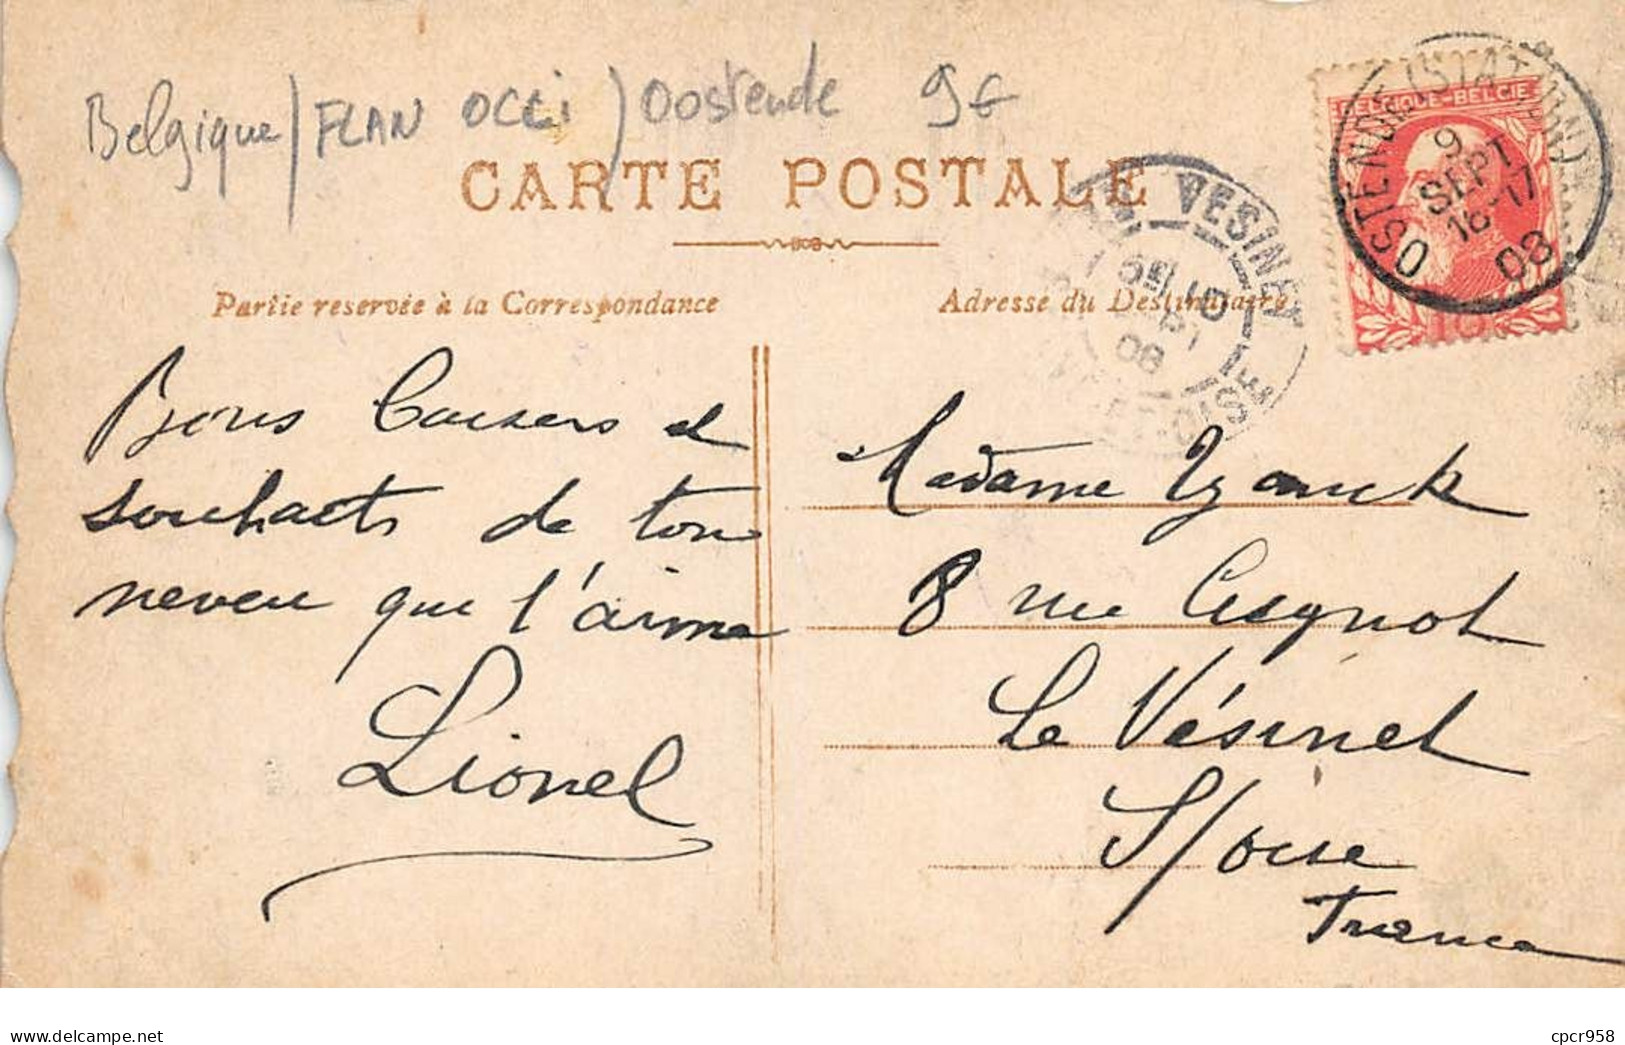 Belgique / FLAN OCCI / Oostende 9€
CARTE POSTALE
Partie reservée à la Correspondance
Adresse du Destinataire
BELGIQUE-BELGIE
10
OSTENDE (STATION)
9
SEPT
16-17
08
VESINET
08
SEINE-ET-OISE
Bons baisers et
souhaits de ton
neveu qui t'aime
Lionel
Madame
8 rue Cugnot
Le Vésinet
S/oise
France
delcampe.net
cpcr958